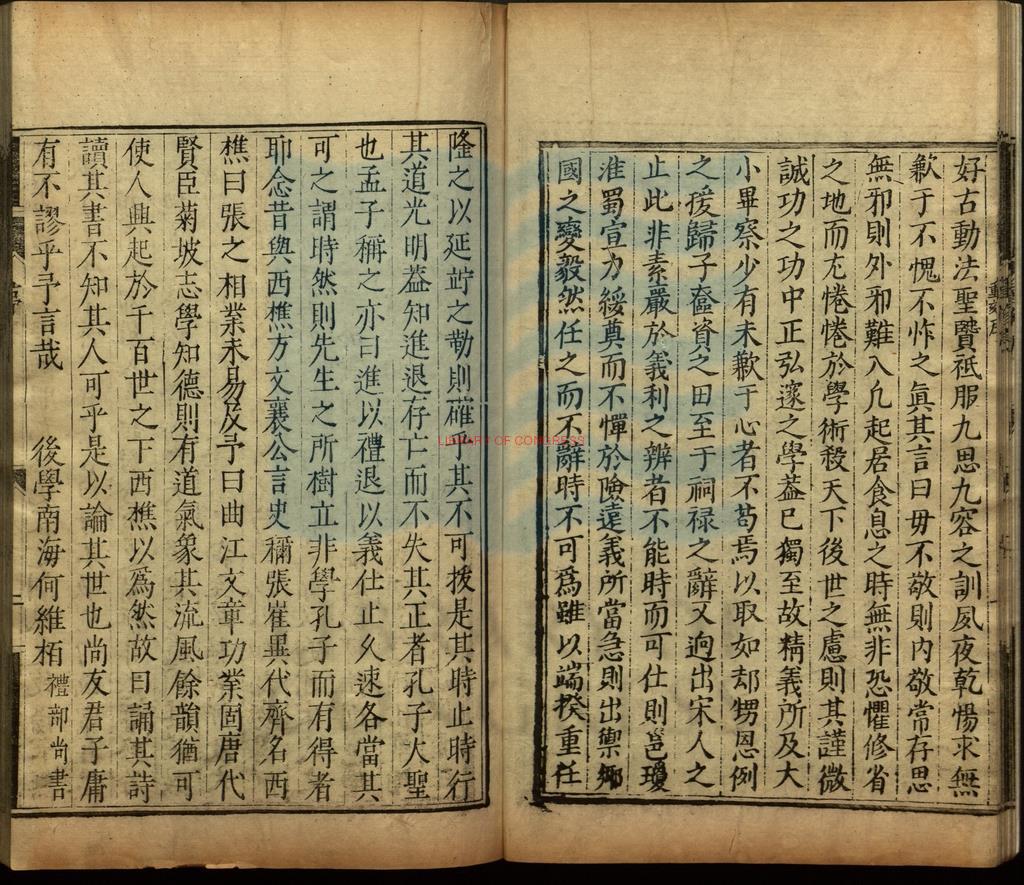 好古動法聖賢祇服九思九容之訓夙夜乾惕求無
歉于不愧不怍之眞其言曰毋不敬則內敬常存思
無邪則外邪難入凢起居食息之時無非恐懼修省
之地而尢惓惓於學術殺天下後世之慮則其謹微
誠功之功中正弘邃之學葢已獨至故精義所及大
小畢察少有未歉于心者不苟焉以取如却甥恩例
之援歸子奩資之田至于祠禄之辭又逈出宋人之
止此非素嚴於義利之辨者不能時而可仕則邕瓊
淮蜀宣力綏奠而不憚於險遠義所當急則出禦鄉
國之變毅然任之而不辭時不可爲雖以端揆重任
隆之以延竚之勤則確乎其不可拔是其時止時行
其道光明葢知進退存亡而不失其正者孔子大聖
也孟子稱之亦曰進以禮退以義仕止久速各當其
可之謂時然則先生之所樹立非學孔子而有得者
耶念昔與西樵方文襄公言史稱張崔異代齊名西
樵曰張之相業未易及予曰曲江文章功業固唐代
賢臣菊坡志學知德則有道氣象其流風餘韻猶可
使人興起於千百世之下西樵以爲然故曰誦其詩
讀其書不知其人可乎是以論其世也尚友君子庸
有不謬乎予言哉 後學南海何維栢 禮部尚書
LIBRARY OF CONGRESS